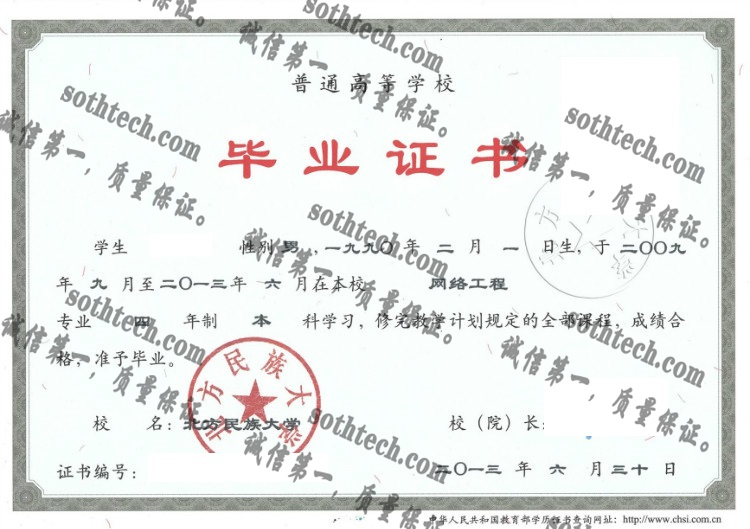 普通高等学校
毕业证书
学生 性别 男 ,一九九〇年 二 月 一 日生, 于 二〇〇九
年 九 月至二〇一三年 六 月在本校 网络工程
专业 四 年制 本 科学习, 修完教学计划规定的全部课程, 成绩合
格, 准予毕业。
北方民族大学
校 名: 北方民族大学 校（院）长:
证书编号: 二〇一三 年 六 月三十日
中华人民共和国教育部学历证书查询网址: http://www.chsi.com.cn
sothtech.com
诚信第一，质量保证。
sothtech.com
诚信第一，质量保证。
sothtech.com
诚信第一，质量保证。
sothtech.com
诚信第一，质量保证。
sothtech.com
诚信第一，质量保证。
sothtech.com
诚信第一，质量保证。
sothtech.com
诚信第一，质量保证。